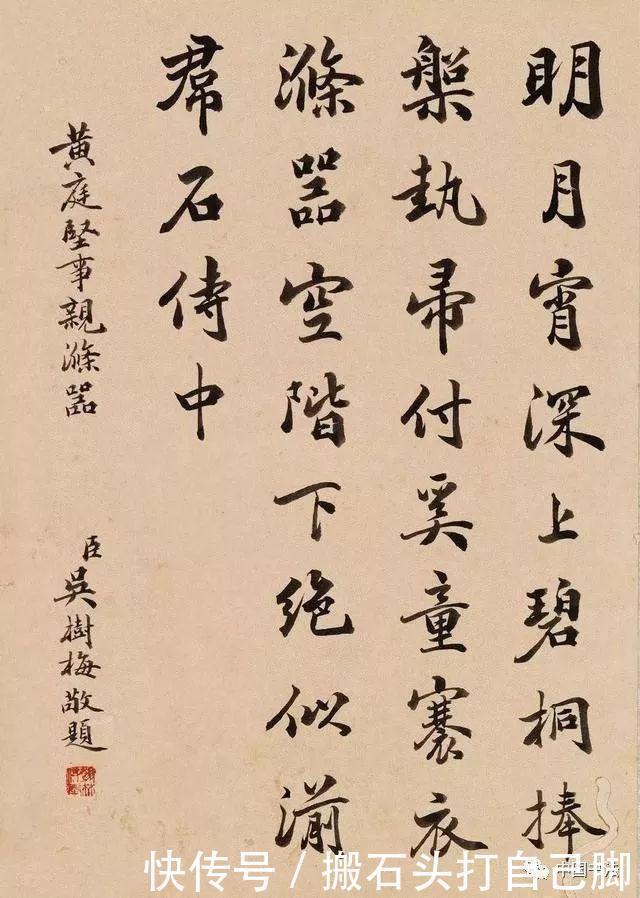 明月宵深上碧桐捧
槃執帚付奚童褰衣
滌器空階下絶似湔
帬石侍中
黃庭堅事親滌器
臣吳樹梅敬題
快传号 / 搬石头打自己脚